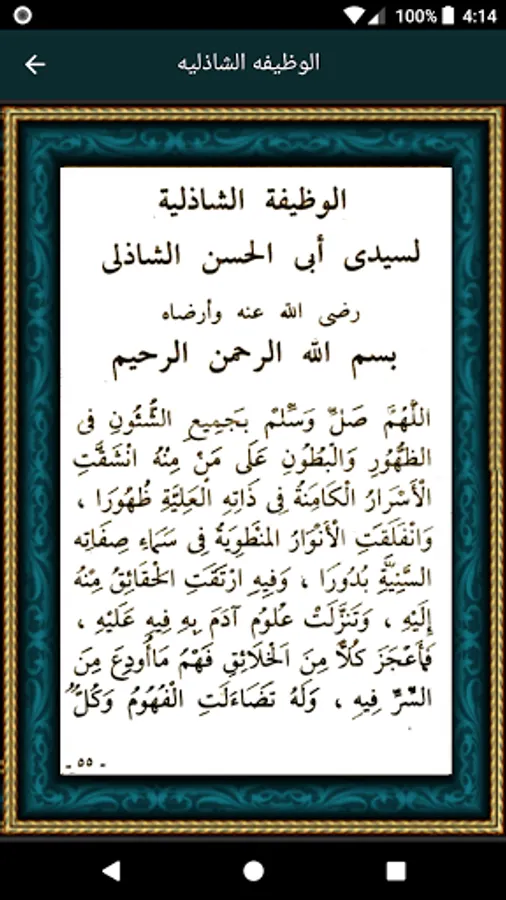 100% 4:14
الوظيفه الشاذليه
الوظيفة الشاذلية
لسيدى أبى الحسن الشاذلى
رضى الله عنه وأرضاه
بسم الله الرحمن الرحيم
اللَّهُمَّ صَلِّ وَسَلِّمْ بِجَمِيعِ الشُّئُونِ فِى
الظُّهُورِ وَالْبُطُونِ عَلَى مَنْ مِنْهُ انْشَقَّتِ
الْأَسْرَارُ الْكَامِنَةُ فِى ذَاتِهِ الْعَلِيَّةِ ظُهُورًا ،
وَانْفَلَقَتِ الْأَنْوَارُ المُنْطَوِيَةُ فِى سَمَاءِ صِفَاتِه
السَّنِيَّةِ بُدُورًا ، وَفِيهِ ارْتَقَتِ الْحَقَائِقُ مِنْهُ
إِلَيْهِ ، وَتَنَزَّلَتْ عُلُومُ آدَمَ بِهِ فِيهِ عَلَيْهِ ،
فَأَعْجَزَ كُلًّا مِنَ الْخَلَائِقِ فَهْمُ مَاأُودِعَ مِنَ
السِّرِّ فِيهِ ، وَلَهُ تَضَاءَلَتِ الْفُهُومُ وَكُلٌّ
- ٥٥ -